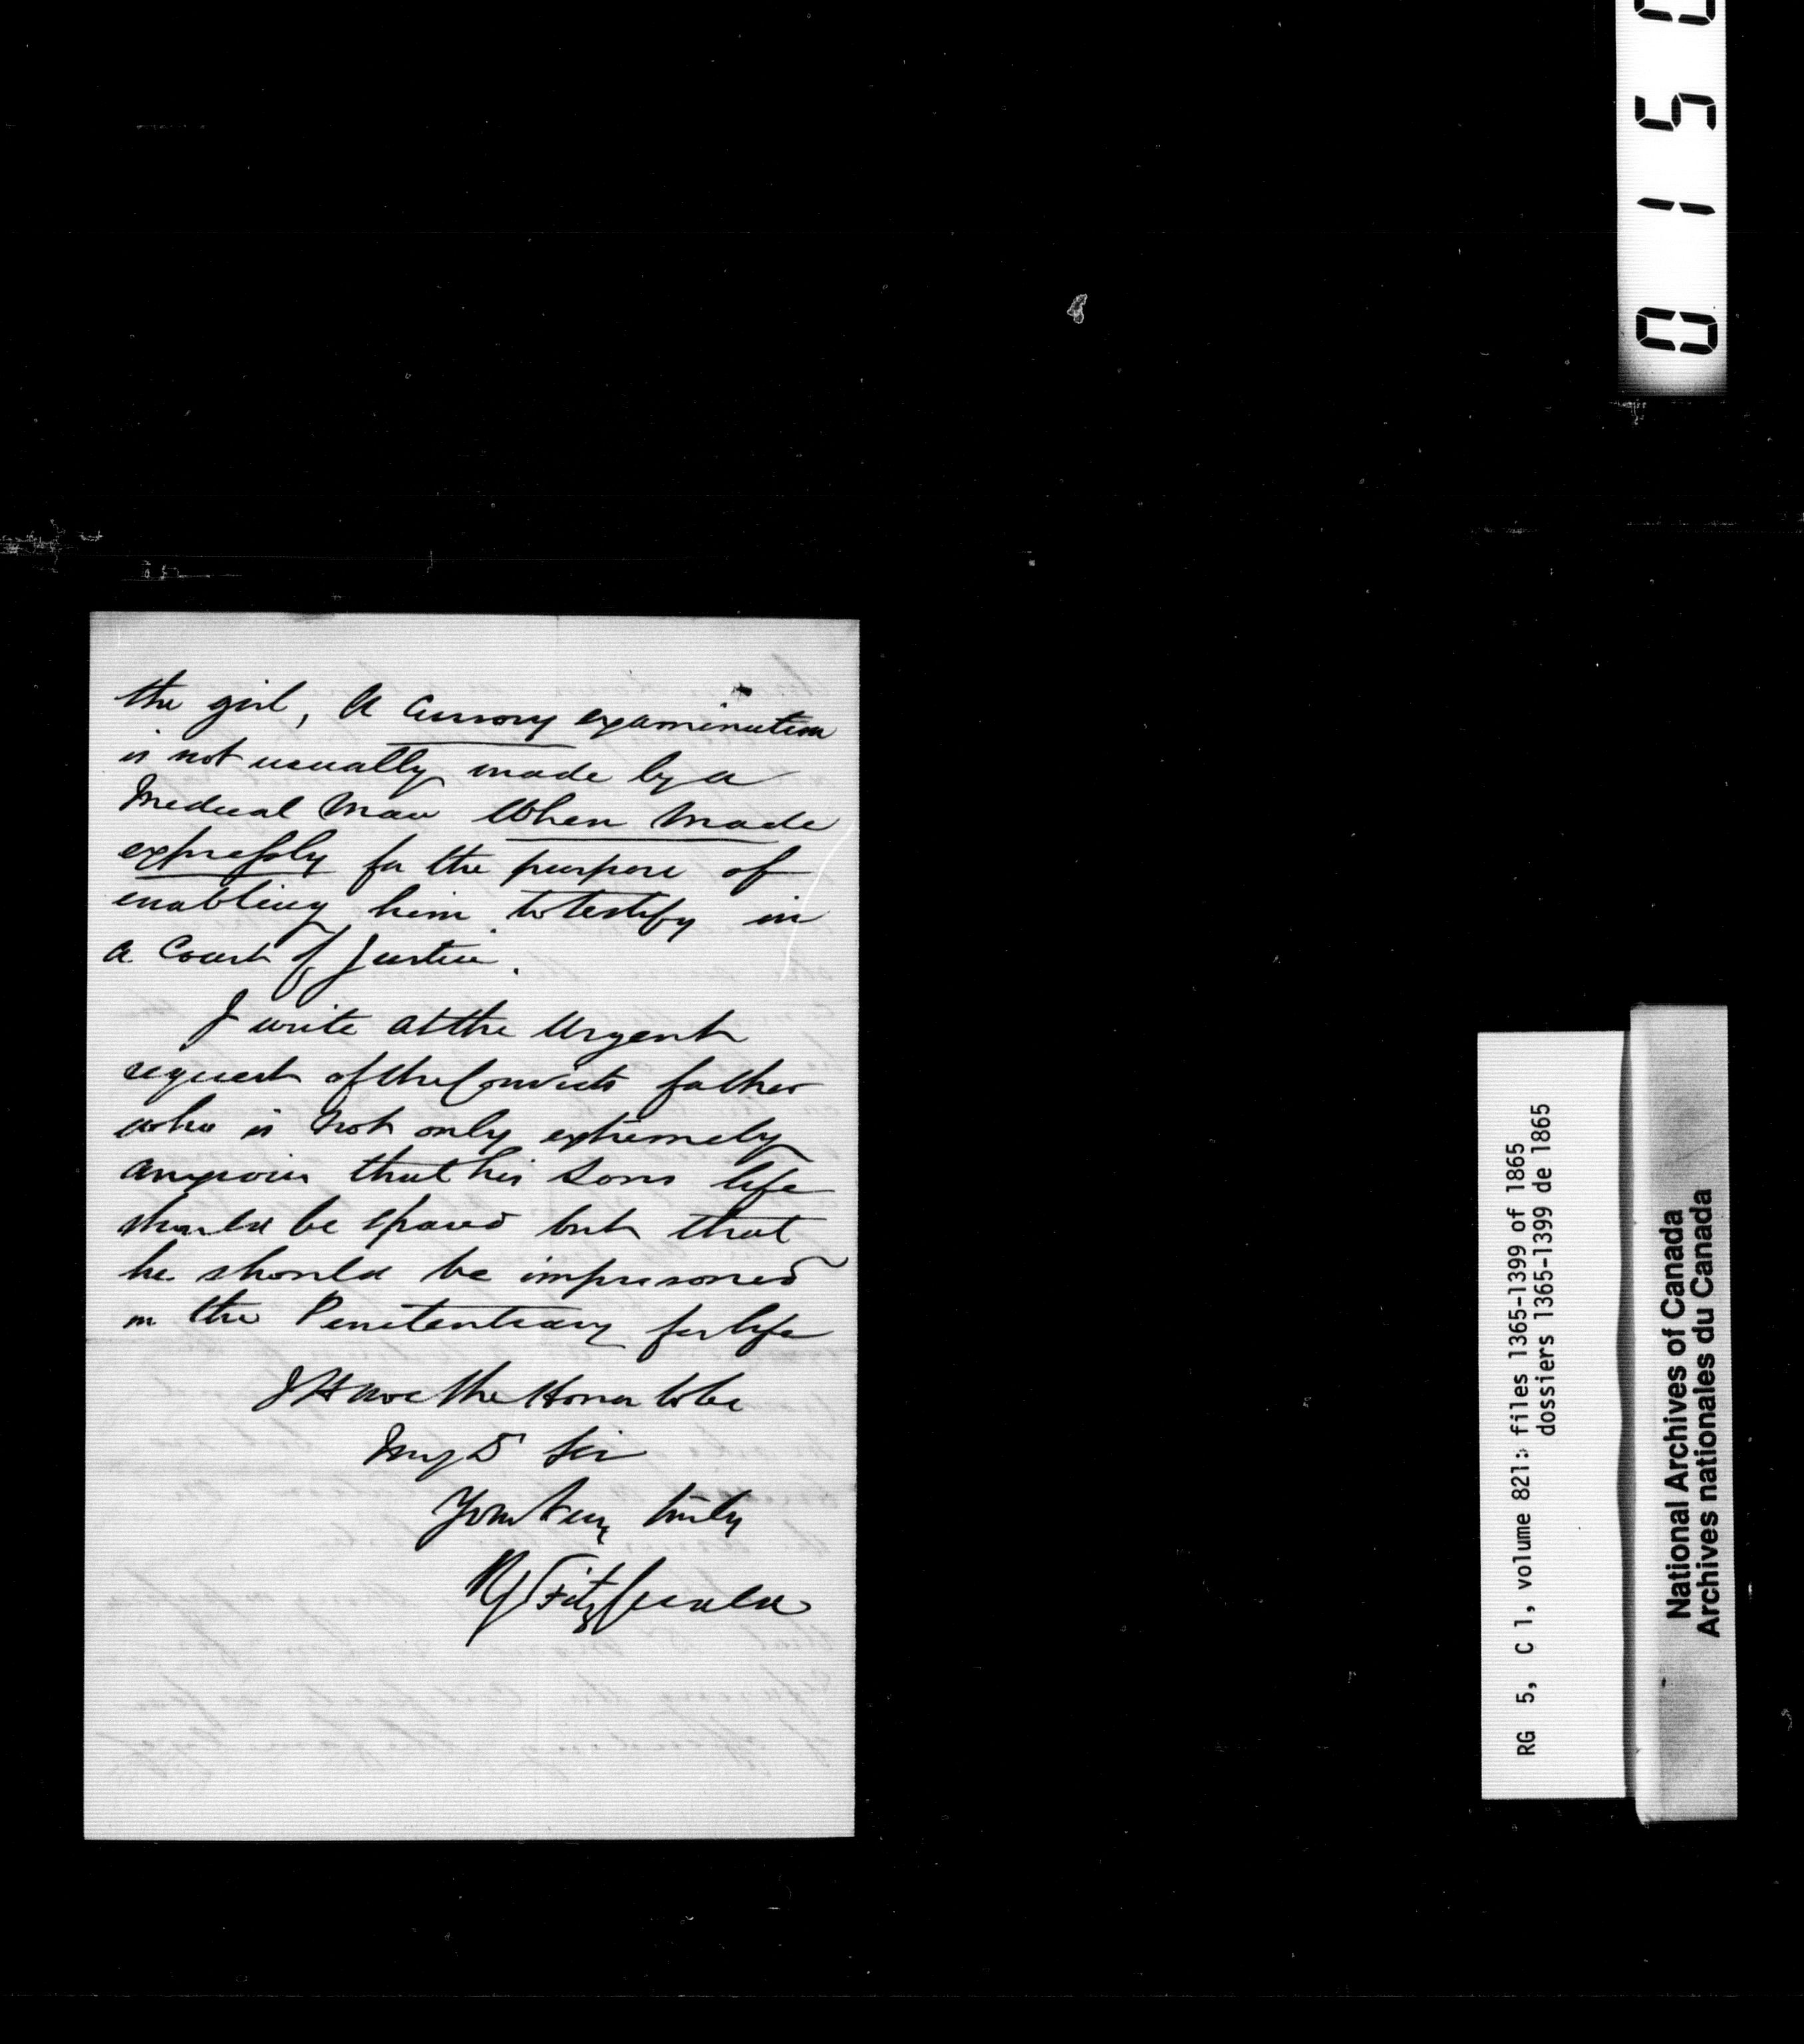 the girl, A Cursory examination
is not usually made by a
Medical Man When Made
expressly for the purpose of
enabling him to testify in
a Court of Justice.
I write at the Urgent
request of the Convicts father
who is Not only extremely
anxious that his Sons life
should be spared but that
he should be imprisoned
in the Penetentiary for life
I Have the Honor to be
My D Sir
Your truly
Fitzgerald
0150
RG 5, C 1, volume 821: files 1365-1399 of 1865
dossiers 1365-1399 de 1865
National Archives of Canada
Archives nationales du Canada